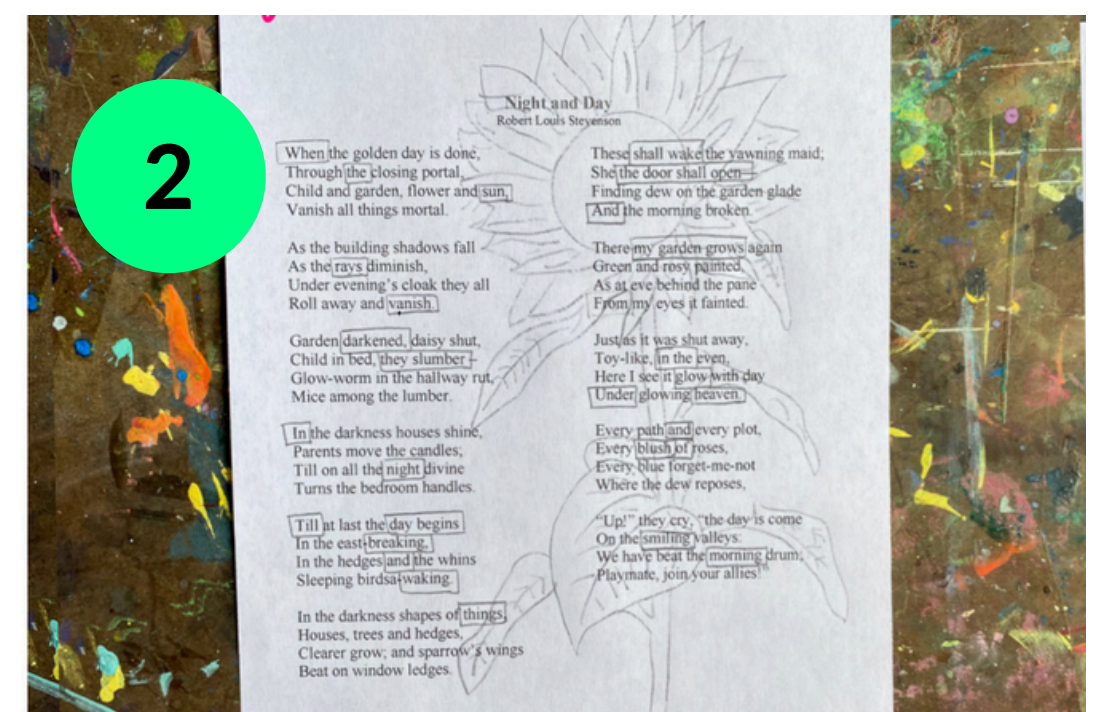 2
Night and Day
Robert Louis Stevenson
When the golden day is done,
Through the closing portal,
Child and garden, flower and sun,
Vanish all things mortal.
As the building shadows fall
As the rays diminish,
Under evening's cloak they all
Roll away and vanish.
Garden darkened, daisy shut,
Child in bed, they slumber–
Glow-worm in the hallway rut,
Mice among the lumber.
In the darkness houses shine,
Parents move the candles;
Till on all the night divine
Turns the bedroom handles.
Till at last the day begins
In the east-breaking,
In the hedges and the whins
Sleeping birdsa-waking.
In the darkness shapes of things,
Houses, trees and hedges,
Clearer grow; and sparrow's wings
Beat on window ledges.
These shall wake the yawning maid;
She the door shall open–
Finding dew on the garden glade
And the morning broken.
There my garden grows again
Green and rosy painted,
As at eve behind the pane
From my eyes it fainted.
Just as it was shut away,
Toy-like, in the even,
Here I see it glow with day
Under glowing heaven.
Every path and every plot,
Every blush of roses,
Every blue forget-me-not
Where the dew reposes,
"Up!" they cry, "the day is come
On the smiling valleys:
We have beat the morning drum;
Playmate, join your allies!"